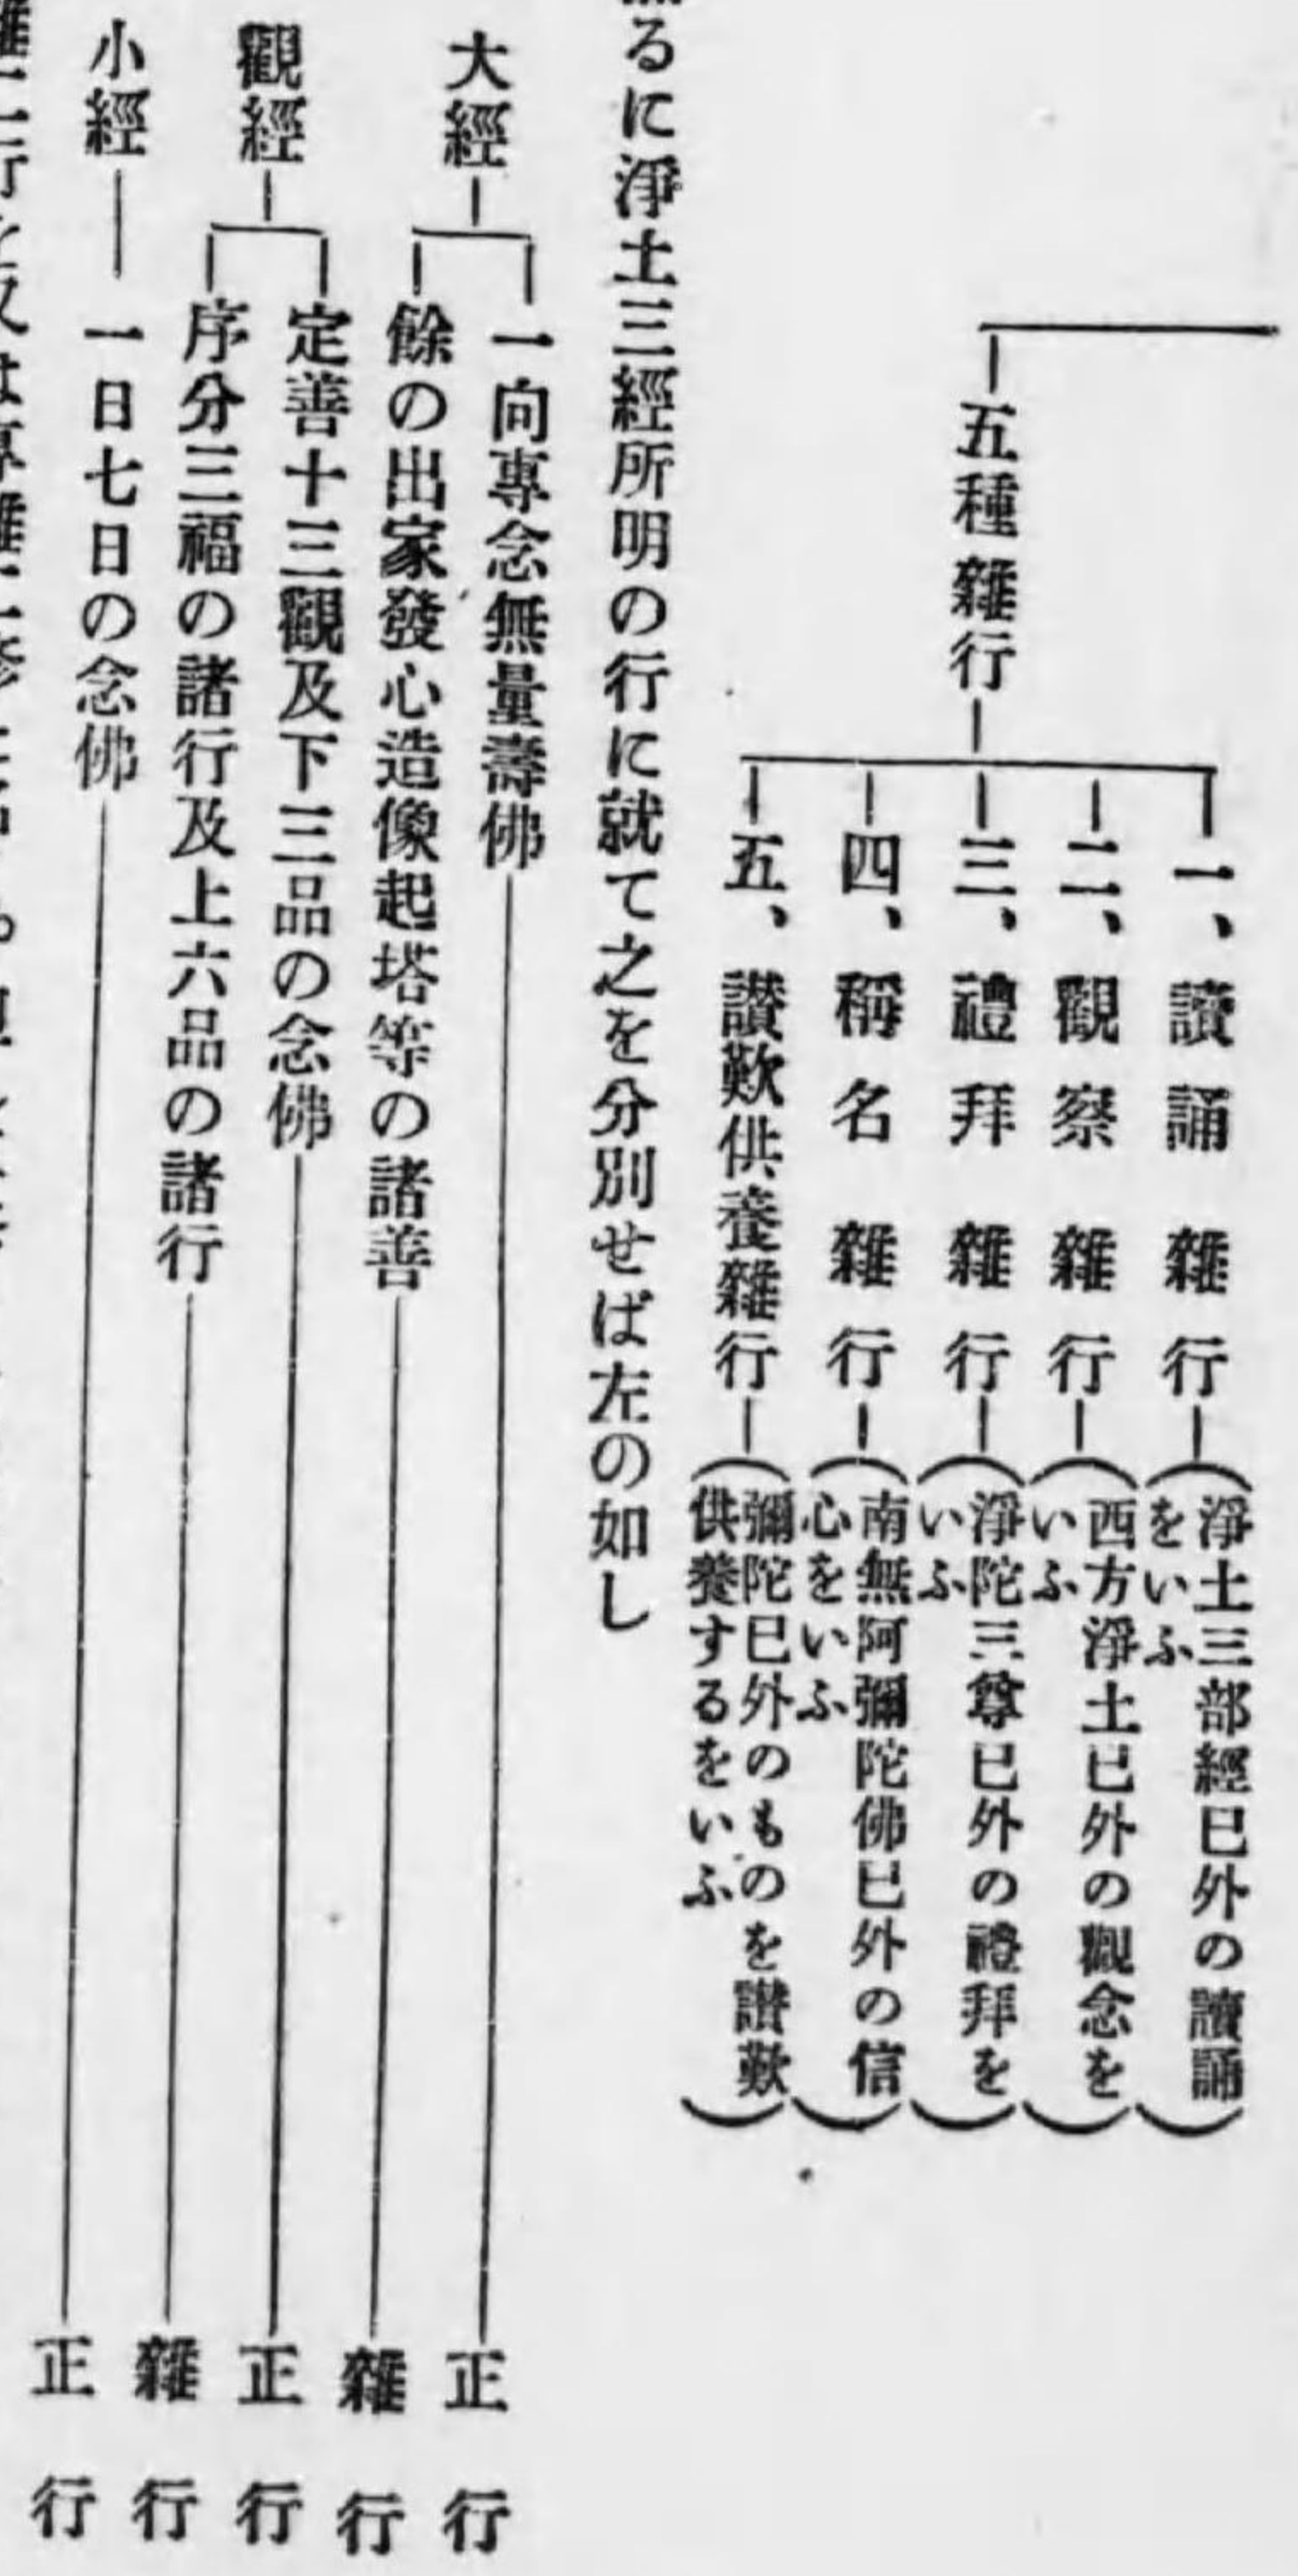 五種雜行
一、讀誦雜行
(淨土三部經已外の讀誦
をいふ)
二、觀察雜行
(西方淨土已外の觀念を
いふ)
三、禮拜雜行
(淨陀三尊已外の禮拜を
いふ)
四、稱名雜行
(南無阿彌陀佛已外の信
心をいふ)
五、讃歎供養雜行
(彌陀已外のものを讃歎
供養するをいふ)
るに淨土三經所明の行に就て之を分別せば左の如し
大經
一向專念無量壽佛 正行
餘の出家發心造像起塔等の諸善 雜行
觀經
定善十三觀及下三品の念佛 正行
序分三福の諸行及上六品の諸行 雜行
小經
一日七日の念佛 正行